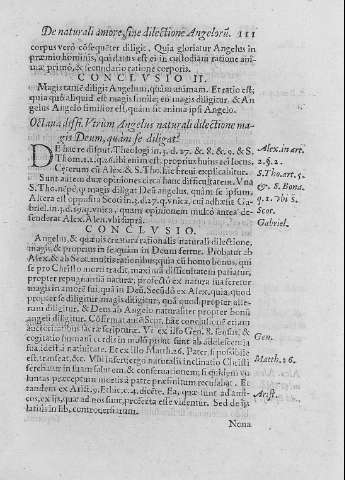 De naturali amore, sive dilectione Angelorũ. 111
corpus verò cõsequẽter diligit. Quia gloriatur Angelus in
præmio hominis, qui datus est ei in custodiam ratione ani-
mæ primò, & secundario ratione corporis.
CONCLVSIO II.
Magis tamẽ diligit Angelum, quàm animam. Et ratio est;
quia quò aliquid est magis simile, eò magis diligitur, & An-
gelus Angelo similior est, quàm sit anima ipsi Angelo.
Octaua diffi. Vtrùm Angelus naturali dilectione ma-
gis Deum, quàm se diligat?
De hac re disput. Theologi in 3. d. 27. & 8. & 9. & S.
Thom. 1. q. 60. ibi enim est proprius huius rei locus.
Cęterum cùm Alex. & S. Tho. hic breui explicabitur.
Sunt autem duæ opiniones circa hanc difficultatem. Vna
S. Tho. nẽpè, q̃ magis diligat Deũ angelus, quàm se ipsum.
Altera est opposita Scoti in 3. d. 27. q. vnica, cui adhæsit Ga-
briel. in 3. d. q. vnica, quam opinionem multò antea de-
fenderat Alex. Alens. vbi suprà.
CONCLVSIO.
Angelus, & quæuis creatura rationalis naturali dilectione,
magis, & propensius in se quàm in Deum fertur. Probatur ab
Alex. & ab Scot. multis rationibus; quia cùm homo bonus, qui
se pro Christo morti tradit, maximã difficultatem patiatur,
propter repugnantiã naturæ, profectò ex natura sua feretur
magis in amorẽ sui, quàm in Deũ. Secũdò ex Alex. quia, quod
propter se diligitur magis diligitur, quã quod propter alte-
rum diligitur, & Deus ab Angelo naturaliter propter bonũ
angeli diligitur. Cõfirmat autẽ Scot. hãc conclusionẽ etiam
auctoritatibus sacræ scripturæ. Vt ex illo Gen. 8. sensus, &
cogitatio humani cordis in malũ prona sunt ab adolescentia
sua, idest à natiuitate. Et ex illo Matth. 26. Pater, si possibile
est, transeat, &c. Vbi insertergo naturalis inclinatio Christi
ferebatur in suam salutem, & conseruationem; si quidem vo-
luntas præceptum mortis à patre præfinitum recusabat. Et
tandem ex Arist. 9. Ethic. c. 4. dicẽte. Ea, quæ sunt ad ami-
cos, ex ijs, quæ ad nos sunt, profecta esse videntur. Sed de ijs
latiùs in lib. controuersiarum.
Alex. in art.
2. §. 2.
S. Tho. art. 5.
& S. Bona.
q. 2. vbi S.
Scot.
Gabriel.
Gen.
Matth. 26.
Arist.
Nona